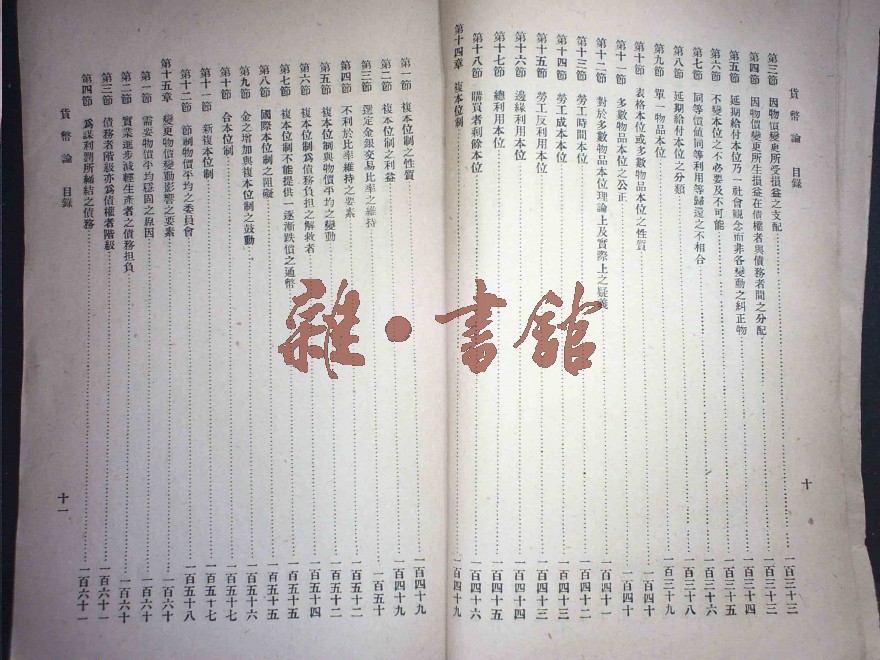 貨幣論　目錄
第三節　因物價變更所受損益之支配……一百三十三
第四節　因物價變更所生損益在債權者與債務者間之分配……一百三十三
第五節　延期給付本位乃一社會觀念而非各變動之糾正物……一百三十四
第六節　不變本位之不必要及不可能……一百三十五
第七節　同等價値同等利用等歸還之不相合……一百三十六
第八節　延期給付本位之分類……一百三十八
第九節　單一物品本位……一百三十九
第十節　表格本位或多數物品本位之性質……一百四十
第十一節　多數物品本位之公正……一百四十
第十二節　對於多數物品本位理論上及實際上之疑義……一百四十一
第十三節　勞工時間本位……一百四十二
第十四節　勞工成本本位……一百四十三
第十五節　勞工反利用本位……一百四十三
第十六節　邊緣利用本位……一百四十四
第十七節　總利用本位……一百四十五
第十八節　購買者剩餘本位……一百四十六
第十四章　複本位制……一百四十九
十
第一節　複本位制之性質……一百四十九
第二節　複本位制之利益……一百四十九
第三節　選定金銀交易比率之維持……一百五十
第四節　不利於比率維持之要素……一百五十二
第五節　複本位制與物價平均之變動……一百五十二
第六節　複本位制爲債務負担之解救者……一百五十四
第七節　複本位制不能提供一逐漸跌價之通幣……一百五十五
第八節　國際本位制之阻礙……一百五十五
第九節　金之增加與複本位制之鼓動……一百五十六
第十節　合本位制……一百五十七
第十一節　新複本位制……一百五十七
第十二節　節制物價平均之委員會……一百五十八
第十五章　變更物價變動影響之要素……一百六十
第一節　需要物價平均穩固之原因……一百六十
第二節　實業進步減輕生產者之債務担負……一百六十
第三節　債務者階級亦爲債權者階級……一百六十一
第四節　爲謀利潤所締結之債務……一百六十一
貨幣論　目錄
十一
雜·書館